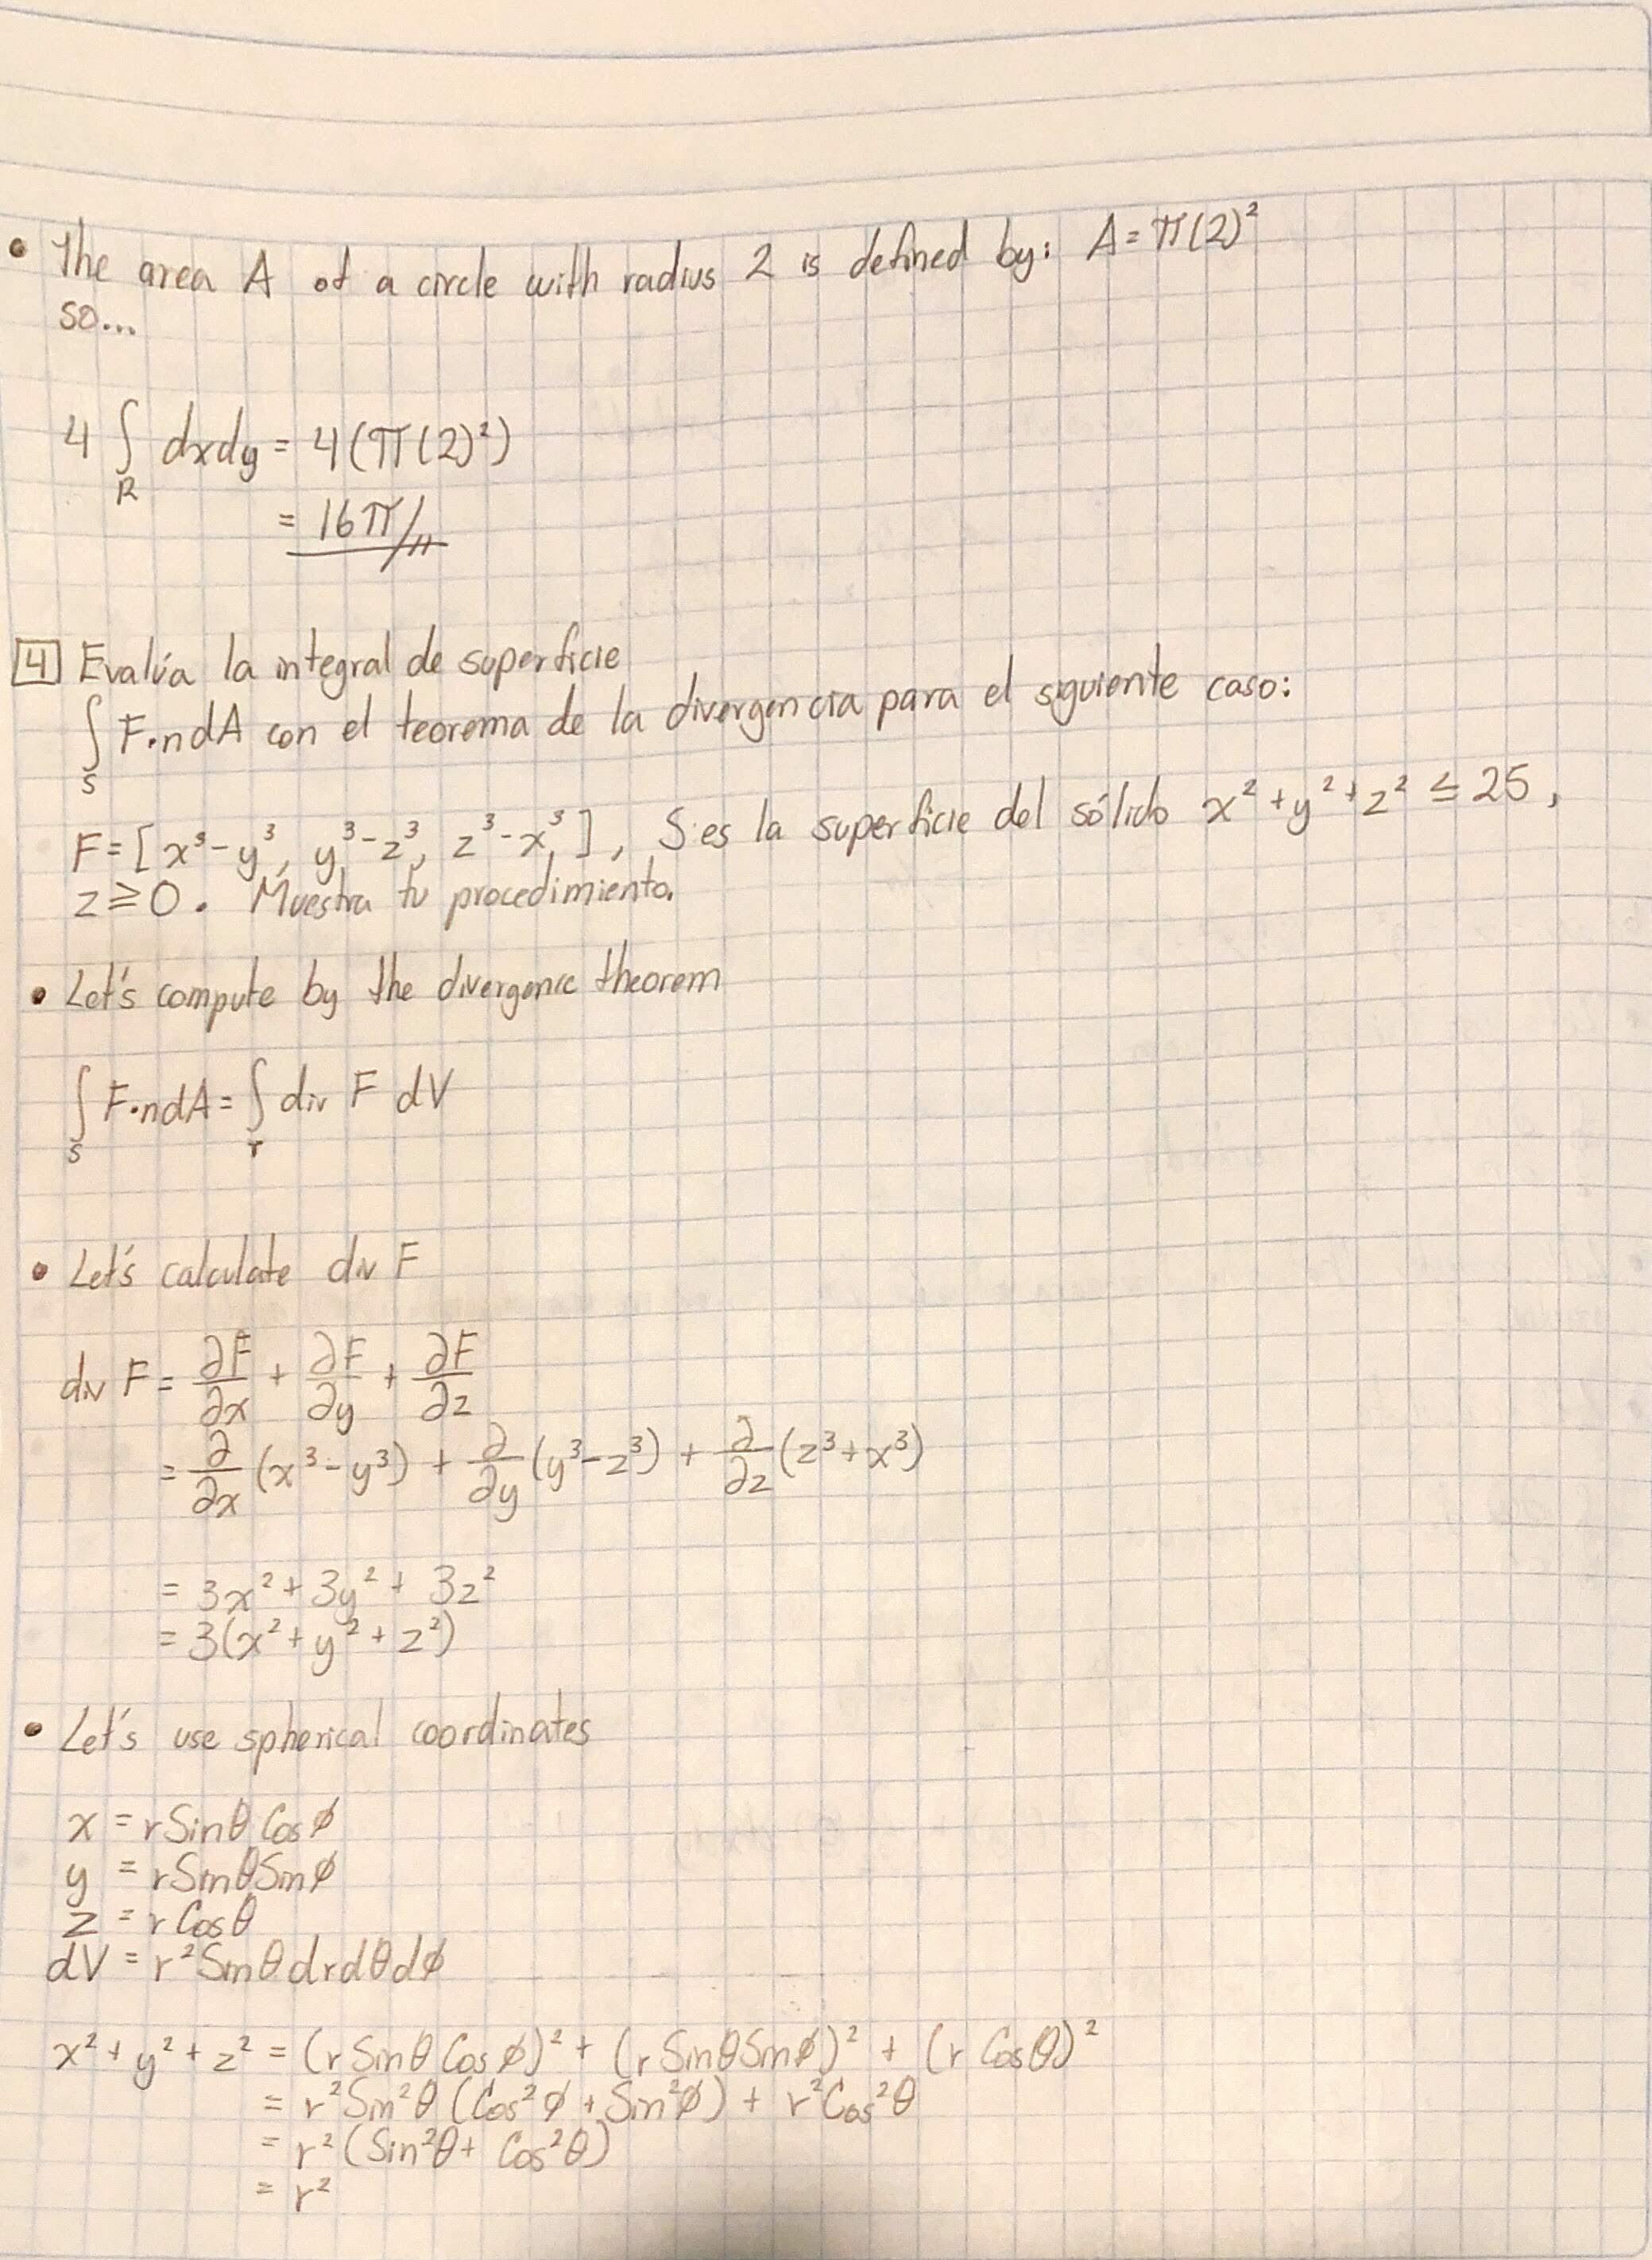 • The area A of a circle with radius 2 is defined by: A = π(2)²
so...
4 ∫_R dxdy = 4(π(2)²)
= 16π//
4 Evalúa la integral de superficie
∫_S F·ndA con el teorema de la divergencia para el siguiente caso:
F = [x³-y³, y³-z³, z³-x³], S es la superficie del sólido x²+y²+z² ≤ 25,
z ≥ 0. Muestra tu procedimiento.
• Let's compute by the divergence theorem
∫_S F·ndA = ∫_T div F dV
• Let's calculate div F
div F = ∂F/∂x + ∂F/∂y + ∂F/∂z
= ∂/∂x (x³-y³) + ∂/∂y (y³-z³) + ∂/∂z (z³+x³)
= 3x² + 3y² + 3z²
= 3(x² + y² + z²)
• Let's use spherical coordinates
x = rSinθ Cosφ
y = rSinθSinφ
z = r Cosθ
dV = r²Sinθdrdθdφ
x² + y² + z² = (rSinθ Cosφ)² + (rSinθSinφ)² + (r Cosθ)²
= r²Sin²θ (Cos²φ + Sin²φ) + r²Cos²θ
= r² (Sin²θ + Cos²θ)
= r²